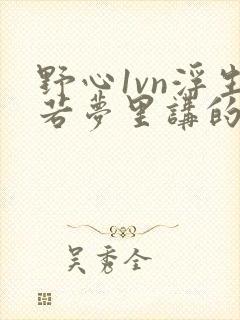 野心1vn浮生
若夢里講的
吴秀全